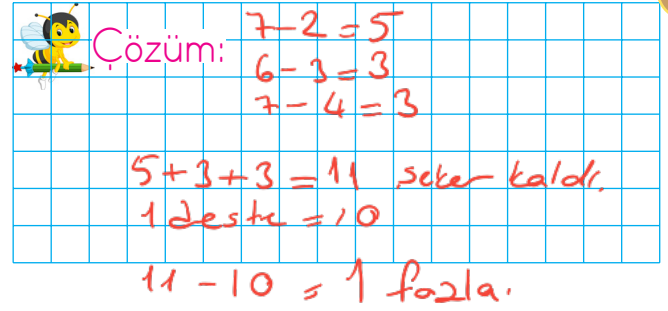 Çözüm:
7-2=5
6-3=3
7-4=3
5+3+3=11 şeker kaldı.
1 deste=10
11-10=1 fazla.